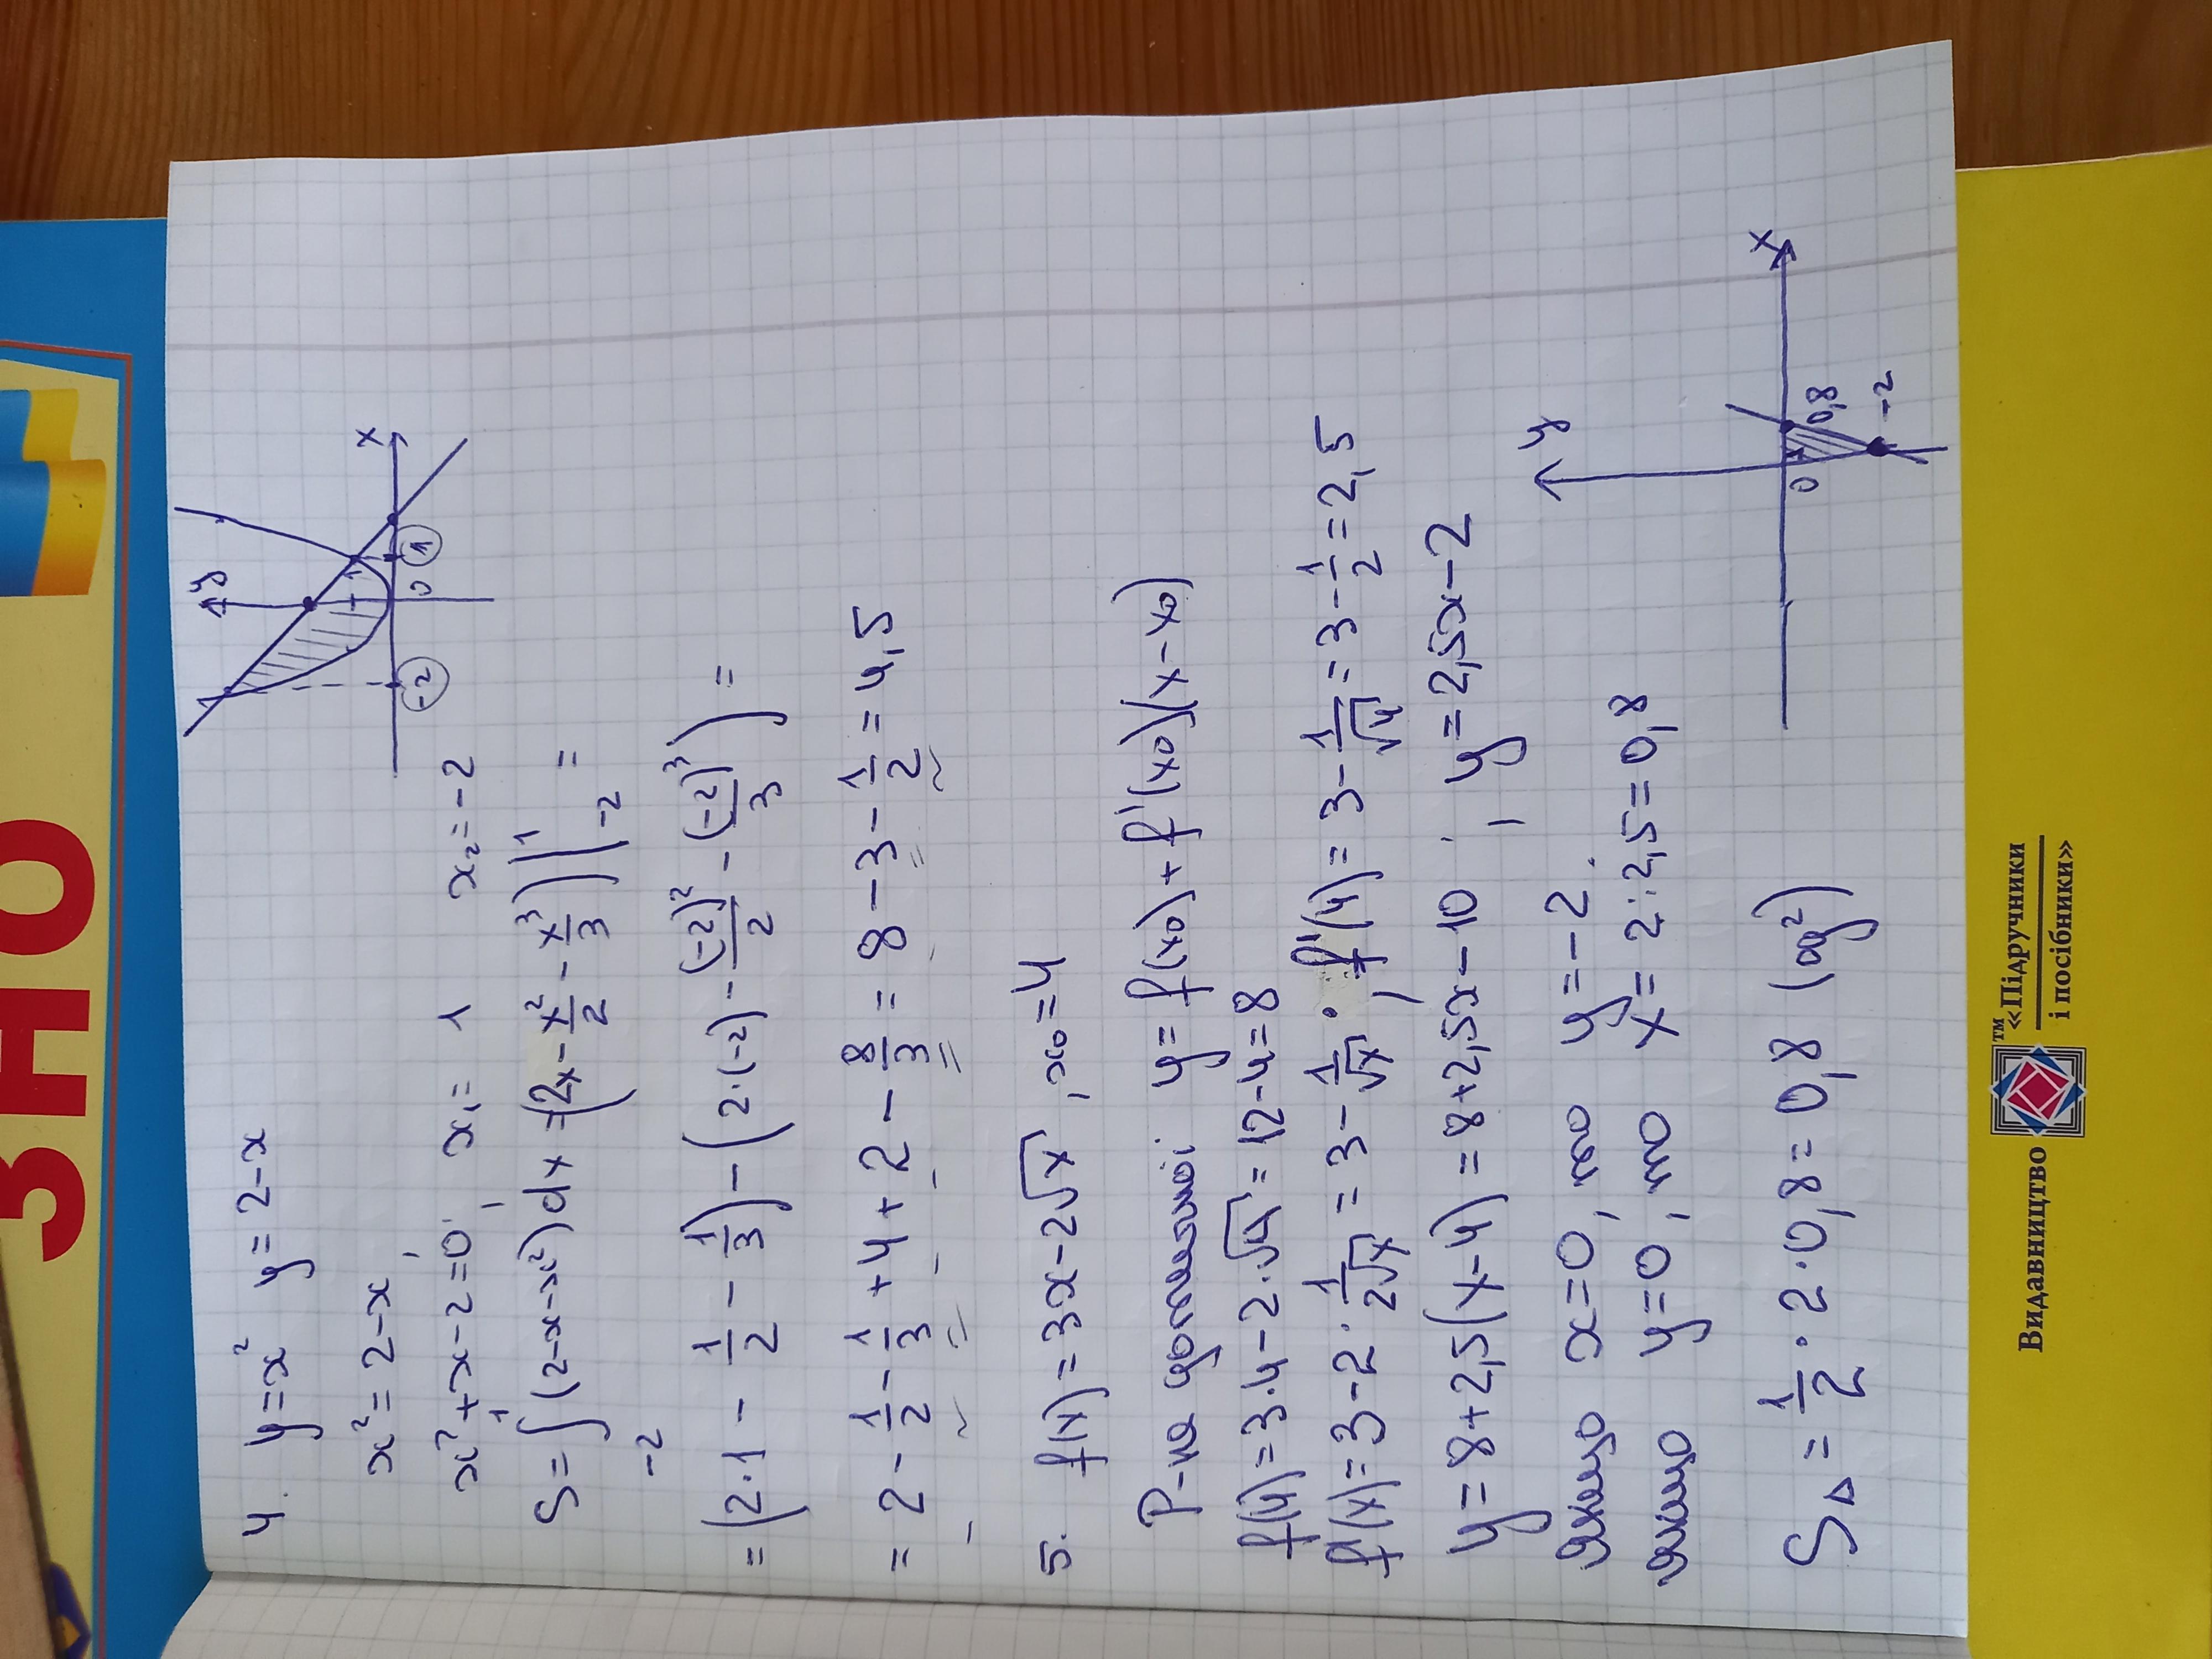 ЗНО
4. y=x² y=2-x
x²=2-x;
x²+x-2=0; x₁=1 x₂=-2
S=∫₋₂¹(2-x-x²)dx=(2x-x²/2-x³/3)|₋₂¹=
=(2·1-1/2-1/3)-(2·(-2)-(-2)²/2-(-2)³/3)=
=2-1/2-1/3+4+2-8/3=8-3-1/2=4,5
y
x
-2
0
1
1
5. f(x)=3x-2√x, x₀=4
Р-на дотичної y=f(x₀)+f'(x₀)(x-x₀)
f(4)=3·4-2·√4=12-4=8
f'(x)=3-2·1/(2√x)=3-1/√x; f'(4)=3-1/√4=3-1/2=2,5
y=8+2,5(x-4)=8+2,5x-10; y=2,5x-2
якщо x=0, то y=-2.
якщо y=0, то x=2:2,5=0,8
S△=1/2·2·0,8=0,8 (од²)
y
x
0
0,8
-2
Видавництво
™
«Підручники
і посібники»